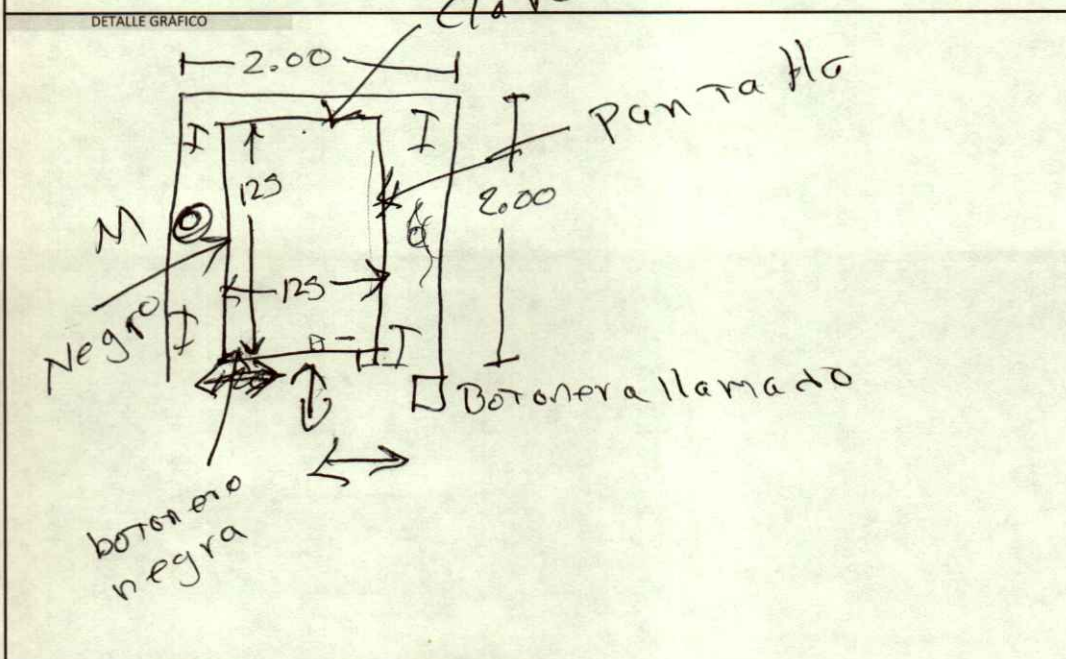 DETALLE GRÁFICO
2.00
Pantalla
I
I
125
2.00
M
125
Negro
I
I
Botonera llamado
botonero
negra